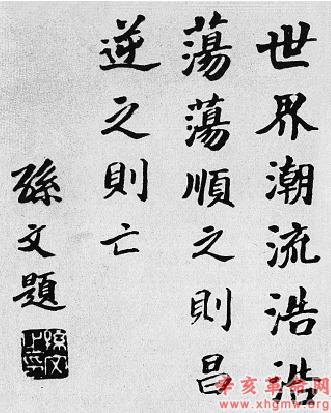 世界潮流浩浩
蕩蕩順之則昌
逆之則亡
孫文題
孫文之印
辛亥革命网
www.xhgmw.org